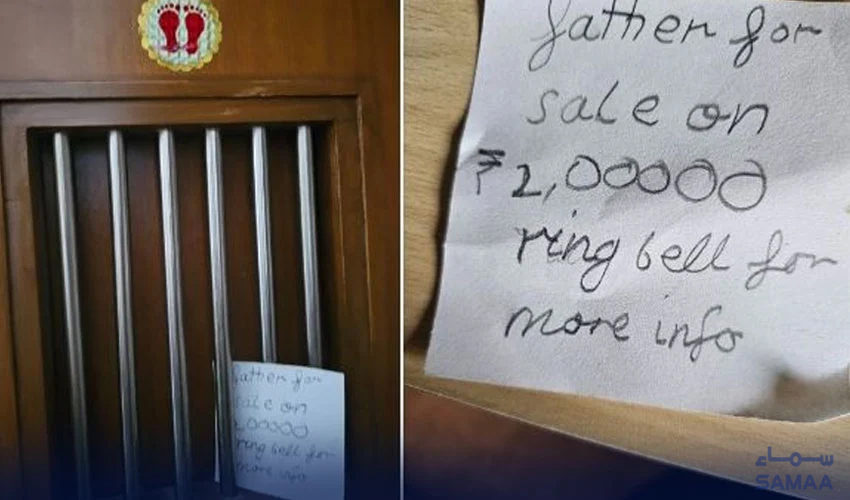 father for
sale on
2,00000
ring bell for
more info
father for
sale on
₹2,00000
ring bell for
more info
سماء
SAMAA